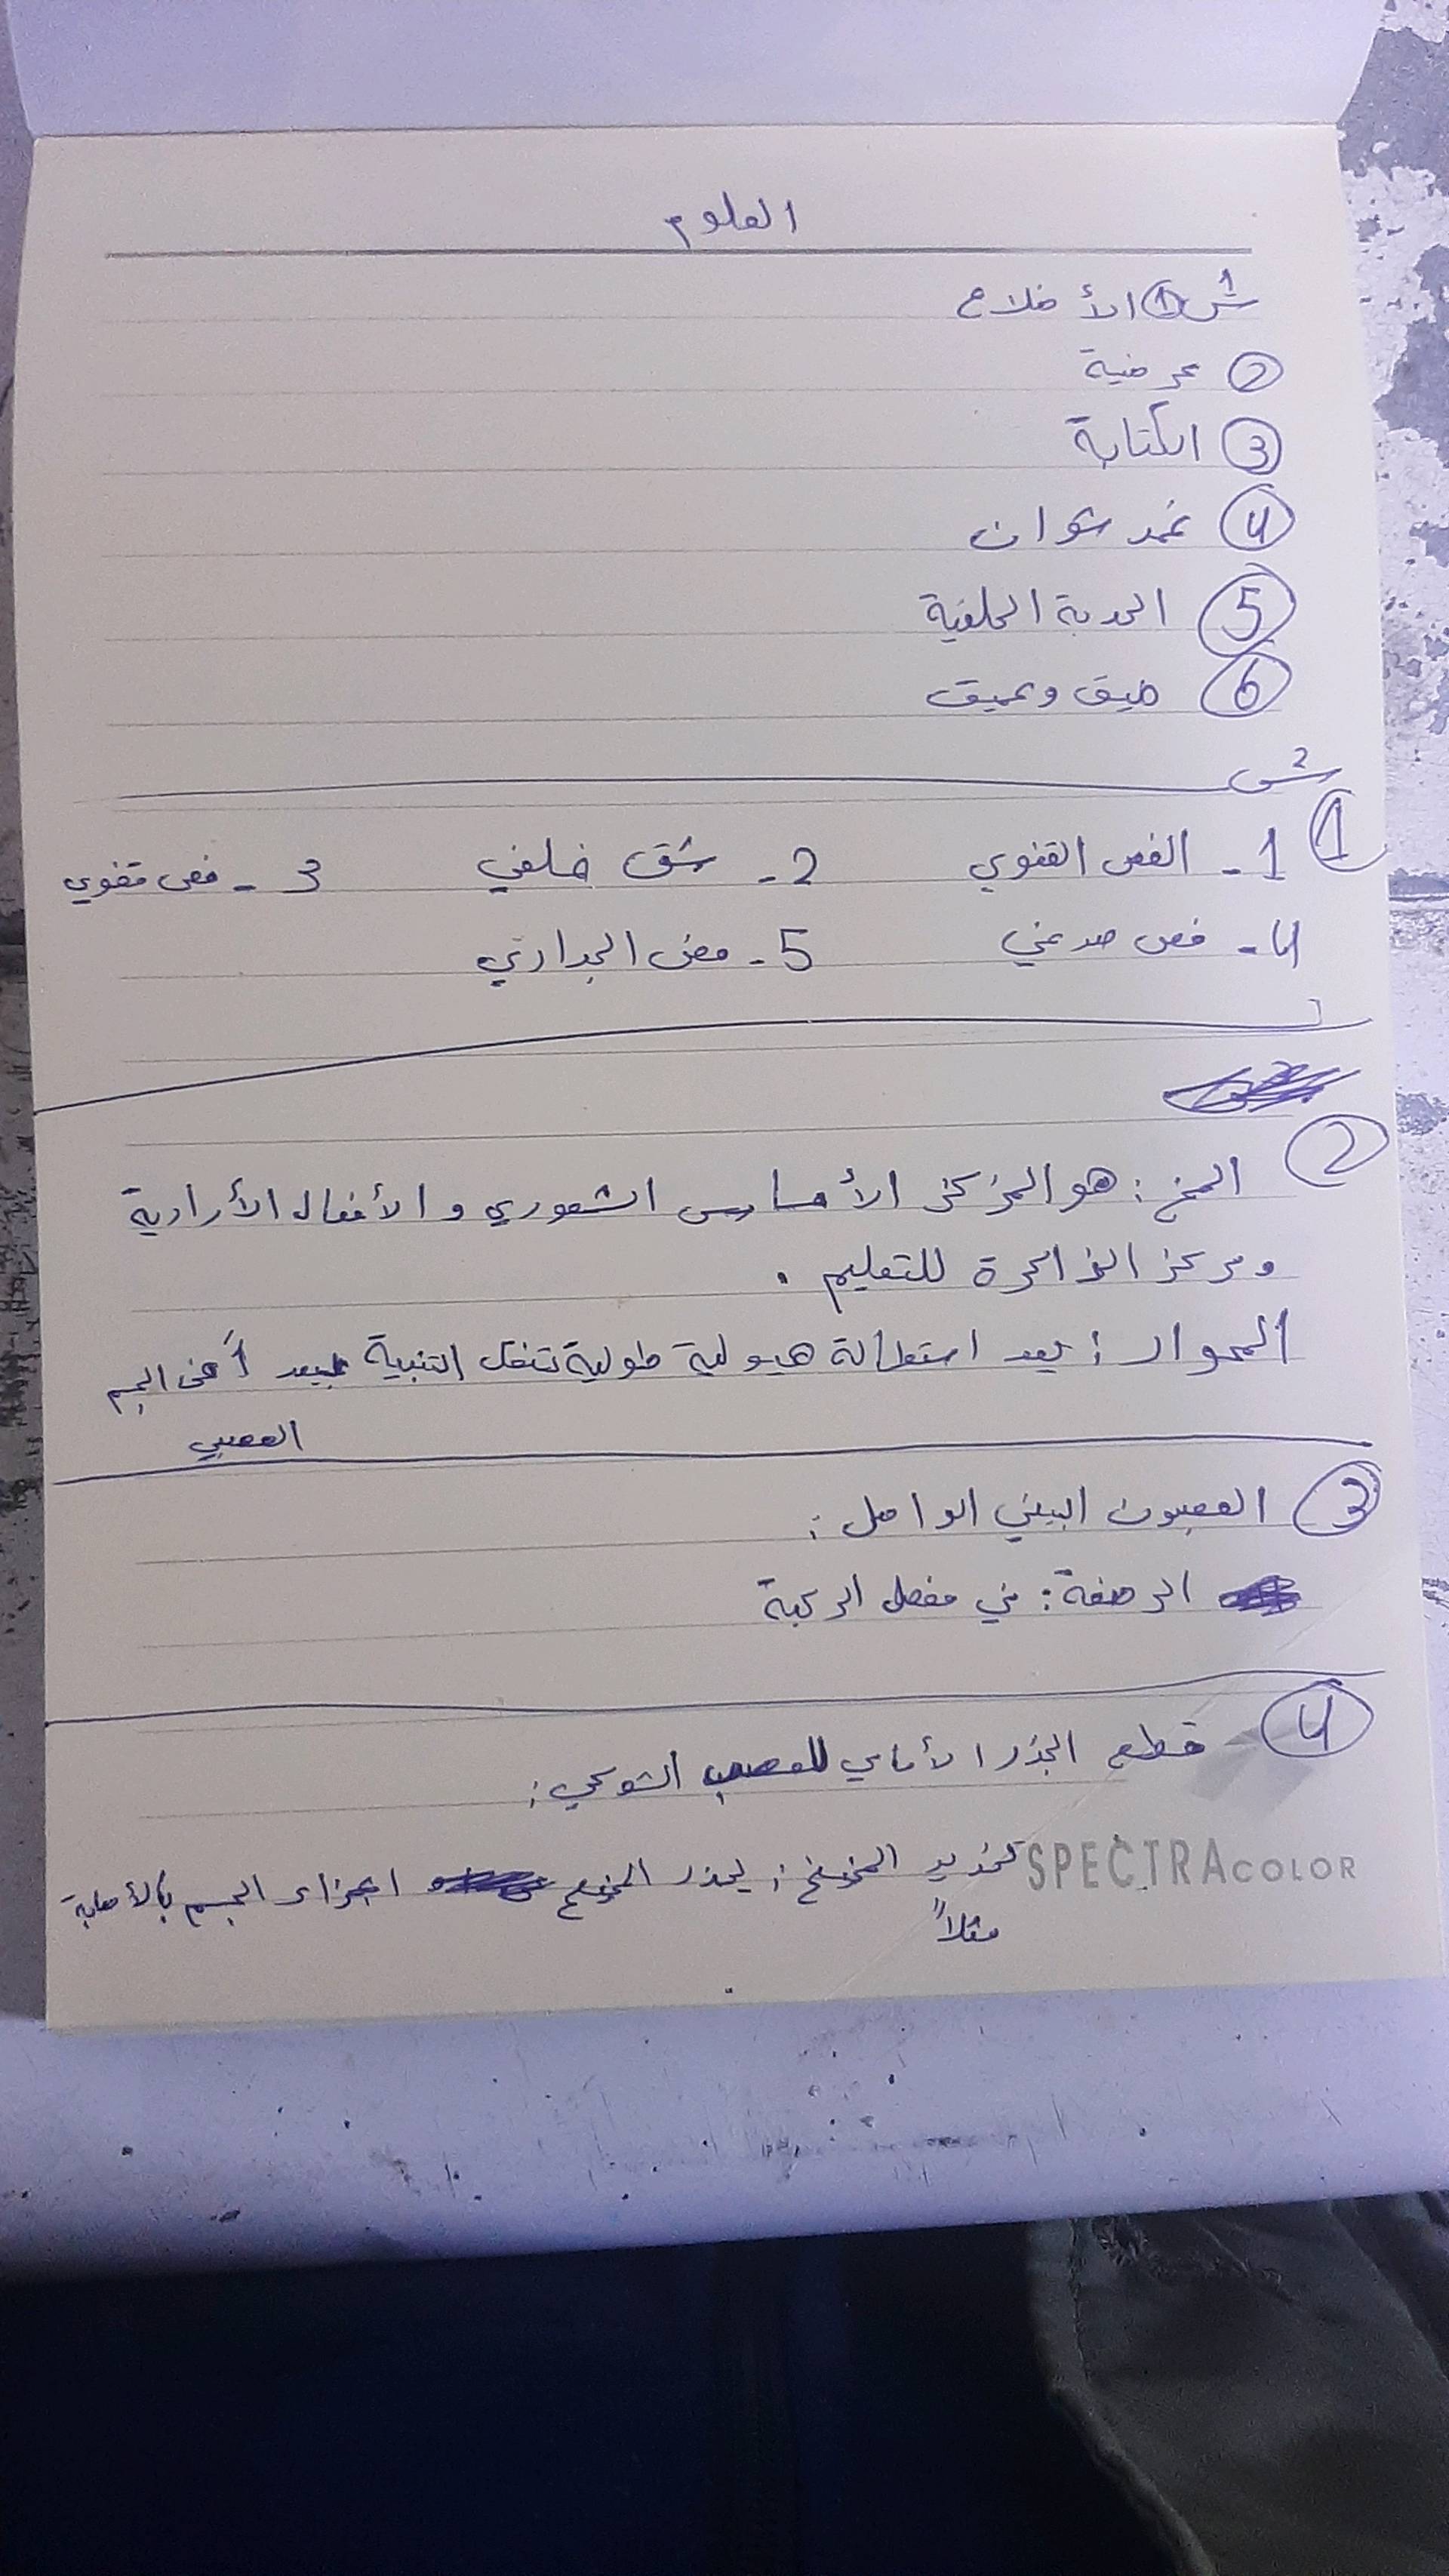 العلوم
س1 ① الأضلاع
② عرضية
③ الكتابة
④ غمد شوان
⑤ الحدبة الحلقية
⑥ ضيق وعميق
س2
① 1- الفص القفوي 2- شق خلفي 3- فص قفوي
4- فص صدغي 5- فص الجداري
② المخ : هو المركز الأساسي الشعوري و الأفعال الأرادية
ومركز الذاكرة للتعليم .
المحوار : يعد استطالة هيولية طولية تنقل التنبية بعد أعن الجسم
العصبي
③ العصبون البيني الواصل :
الرضفة : في مفصل الركبة
④ قطع الجذر الأمامي للعصب الشوكي :
تخذير المخيخ : ليحذر المخيخ اجزاء الجسم بالأصابة
SPECTRACOLOR
مثلاً